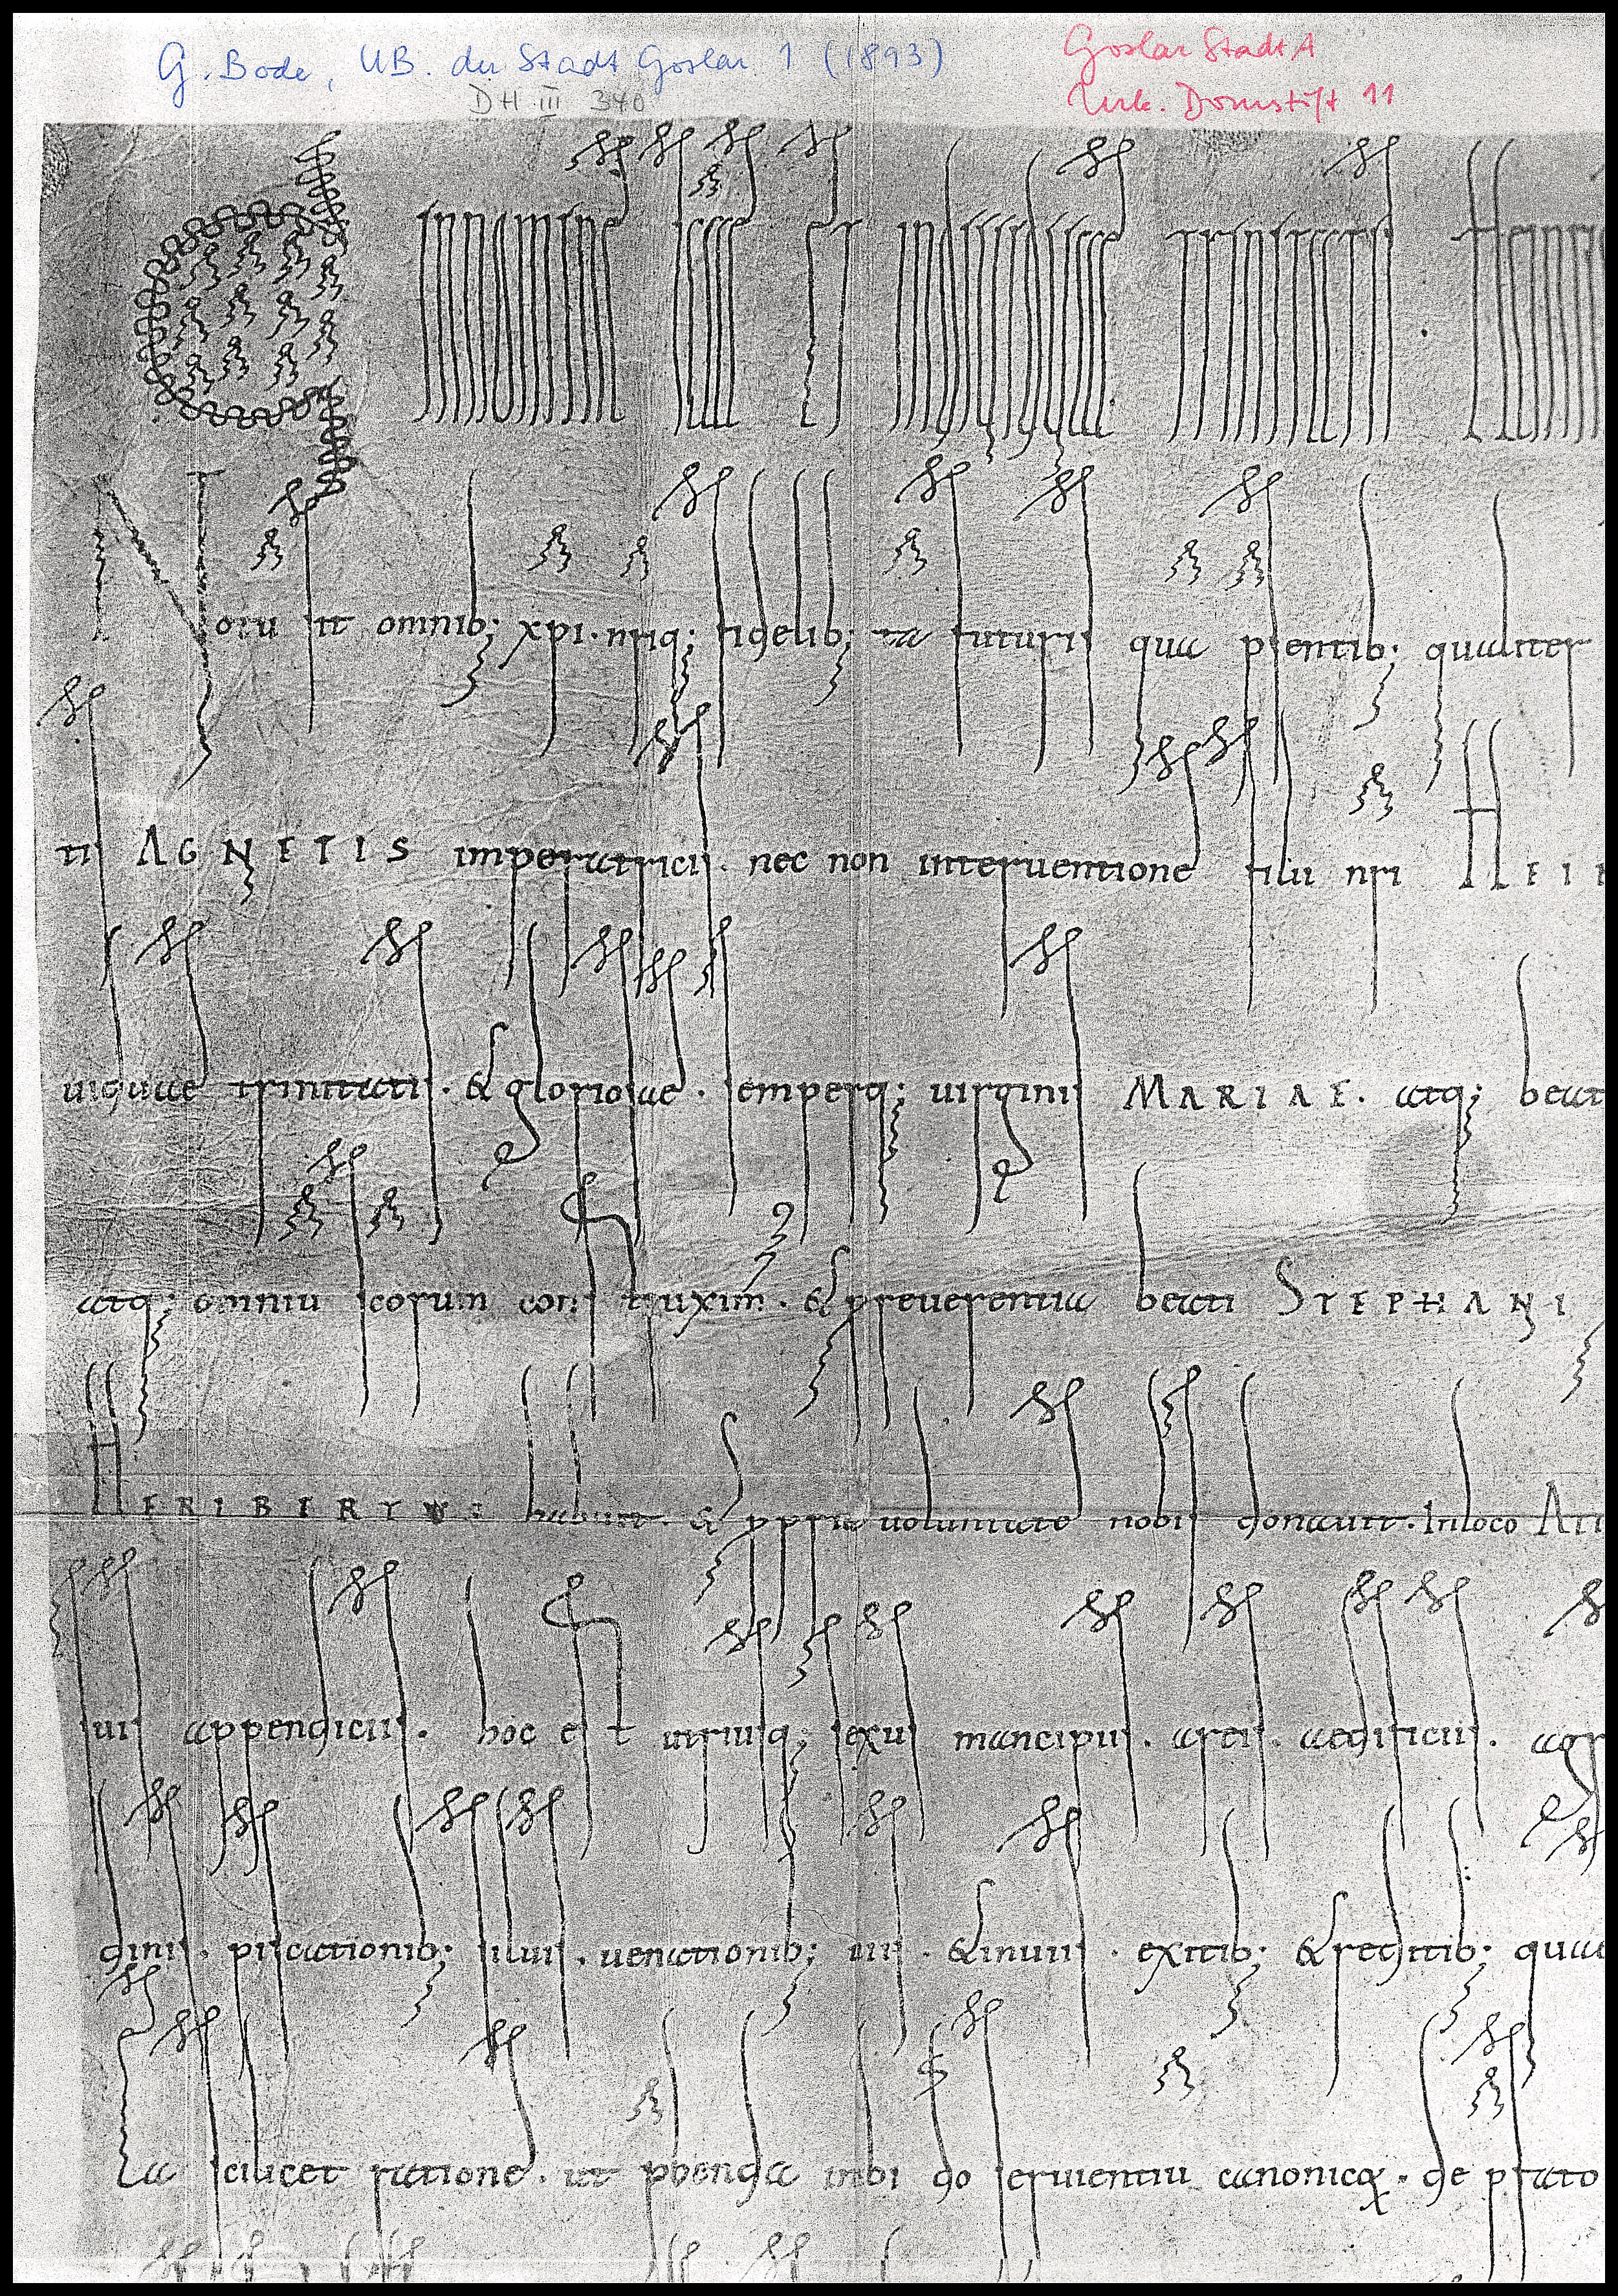 G. Bode, UB. der Stadt Goslar 1 (1893)
Goslar StadtA
DH III 340
Urk. Domstift 11
In nomine sanctae et individuae trinitatis . Heinric
Notu sit omnib; xpi . nrisq; fidelib; ta futuris qua psentib; qualiter
tis AGNETIS imperatricis . nec non interventione filii nri HEIN
uiduae trinitatis . & gloriosae . semperq; uirginis MARIAE . atq; beat
atq; omniu scorum construxim . & p reuerentia beati STEPHANI
HERIBERTUS habuit . & ppria uoluntate nobis donauit . In loco
suis appendiciis . hoc est utriusq; sexus mancipiis . areis . aedificiis . agr
dinis . piscationib; siluis . uenationib; uiis . & inuiis . exitib; & reditib; quae
Ea scilicet ratione . ut pbenda inibi do seruientiu canonicoꝝ . de pfato